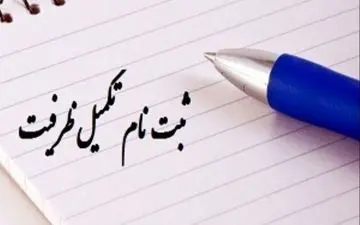 ثبت نام تکمیل ظرفیت